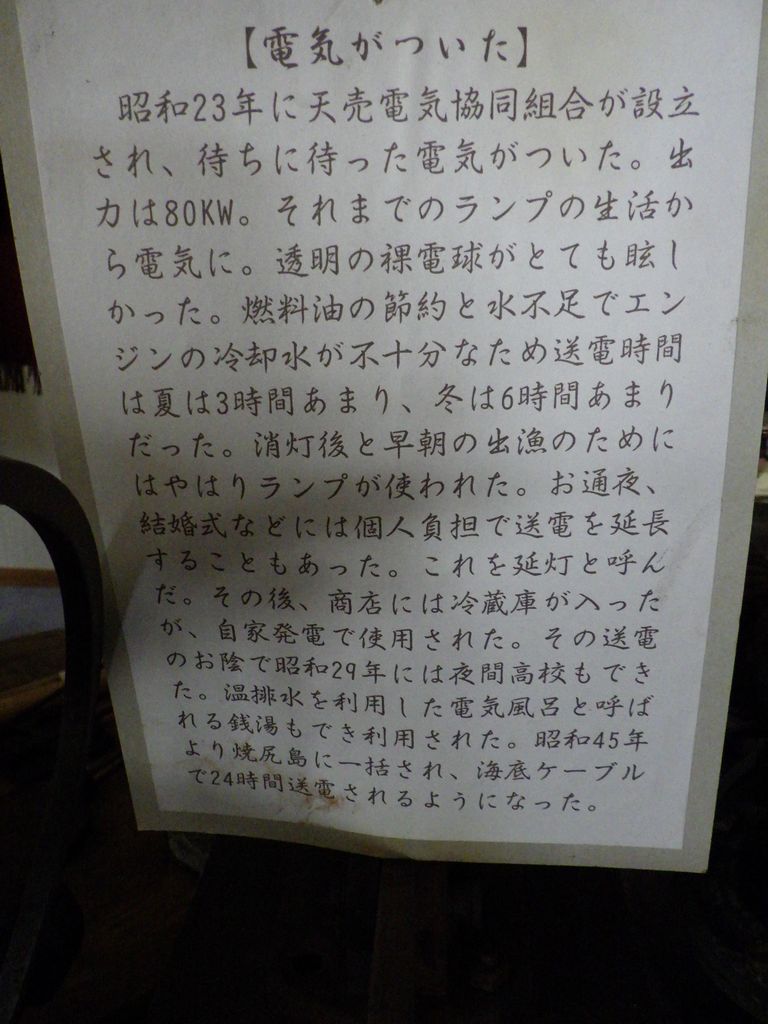 【電気がついた】
昭和23年に天売電気協同組合が設立
され、待ちに待った電気がついた。出
力は80KW。それまでのランプの生活か
ら電気に。透明の裸電球がとても眩し
かった。燃料油の節約と水不足でエン
ジンの冷却水が不十分なため送電時間
は夏は3時間あまり、冬は6時間あまり
だった。消灯後と早朝の出漁のために
はやはりランプが使われた。お通夜、
結婚式などには個人負担で送電を延長
することもあった。これを延灯と呼ん
だ。その後、商店には冷蔵庫が入った
が、自家発電で使用された。その送電
のお陰で昭和29年には夜間高校もでき
た。温排水を利用した電気風呂と呼ば
れる銭湯もでき利用された。昭和45年
より焼尻島に一括され、海底ケーブル
で24時間送電されるようになった。